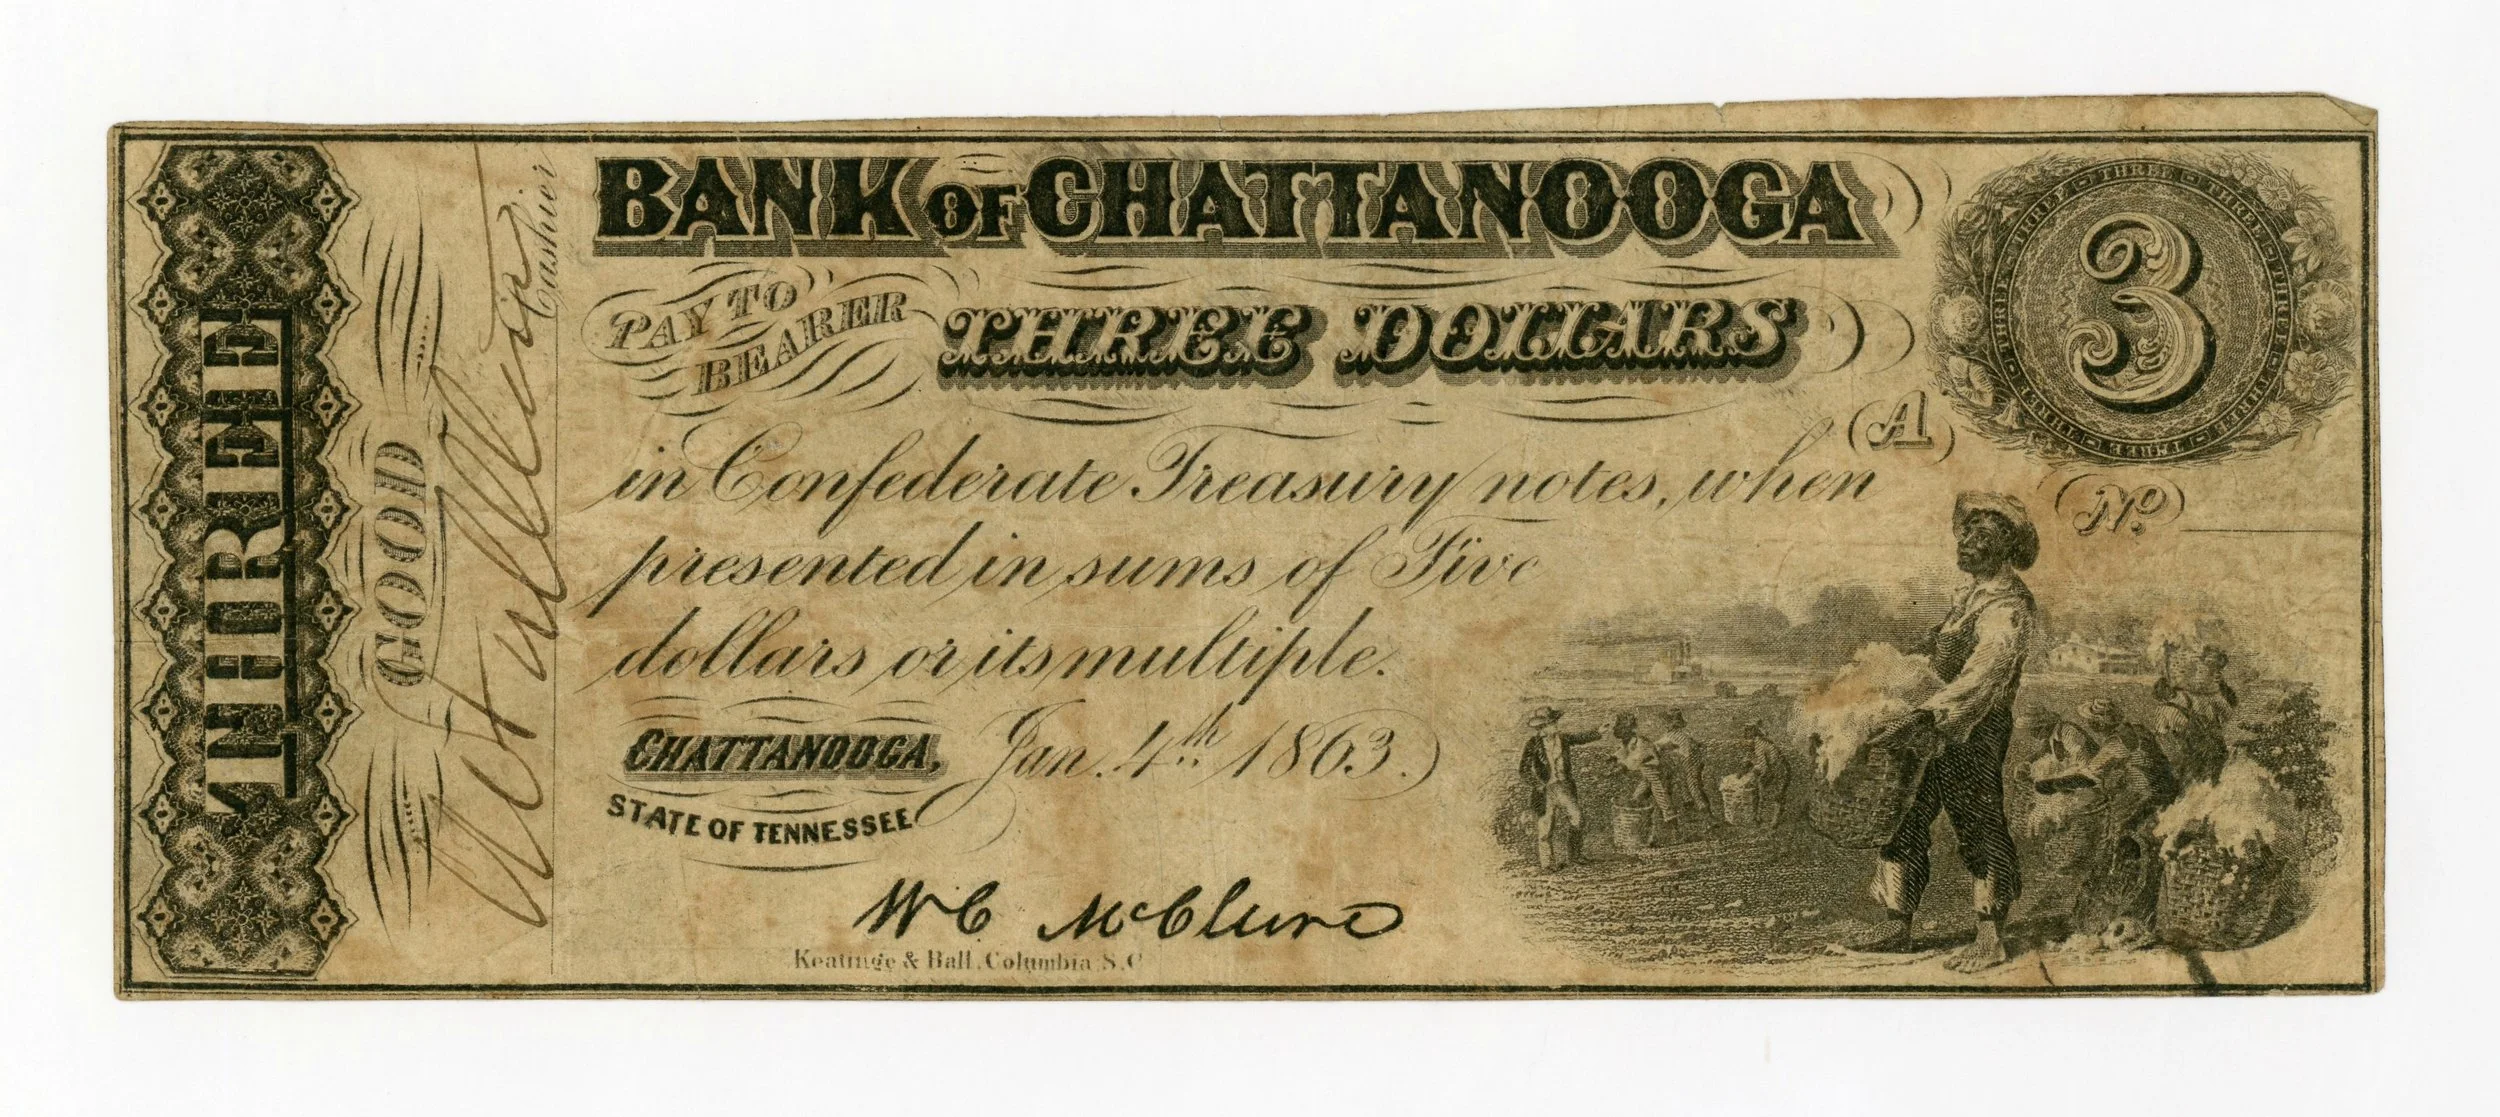 THREE
GOOD
Cashier
BANK OF CHATTANOOGA
PAY TO
BEARER
THREE DOLLARS
3
THREE THREE THREE THREE THREE THREE THREE THREE
A
No.
in Confederate Treasury notes, when
presented in sums of Five
dollars or its multiple.
CHATTANOOGA, Jan. 4th 1863.
STATE OF TENNESSEE
W C McClure
Keatinge & Ball, Columbia S.C